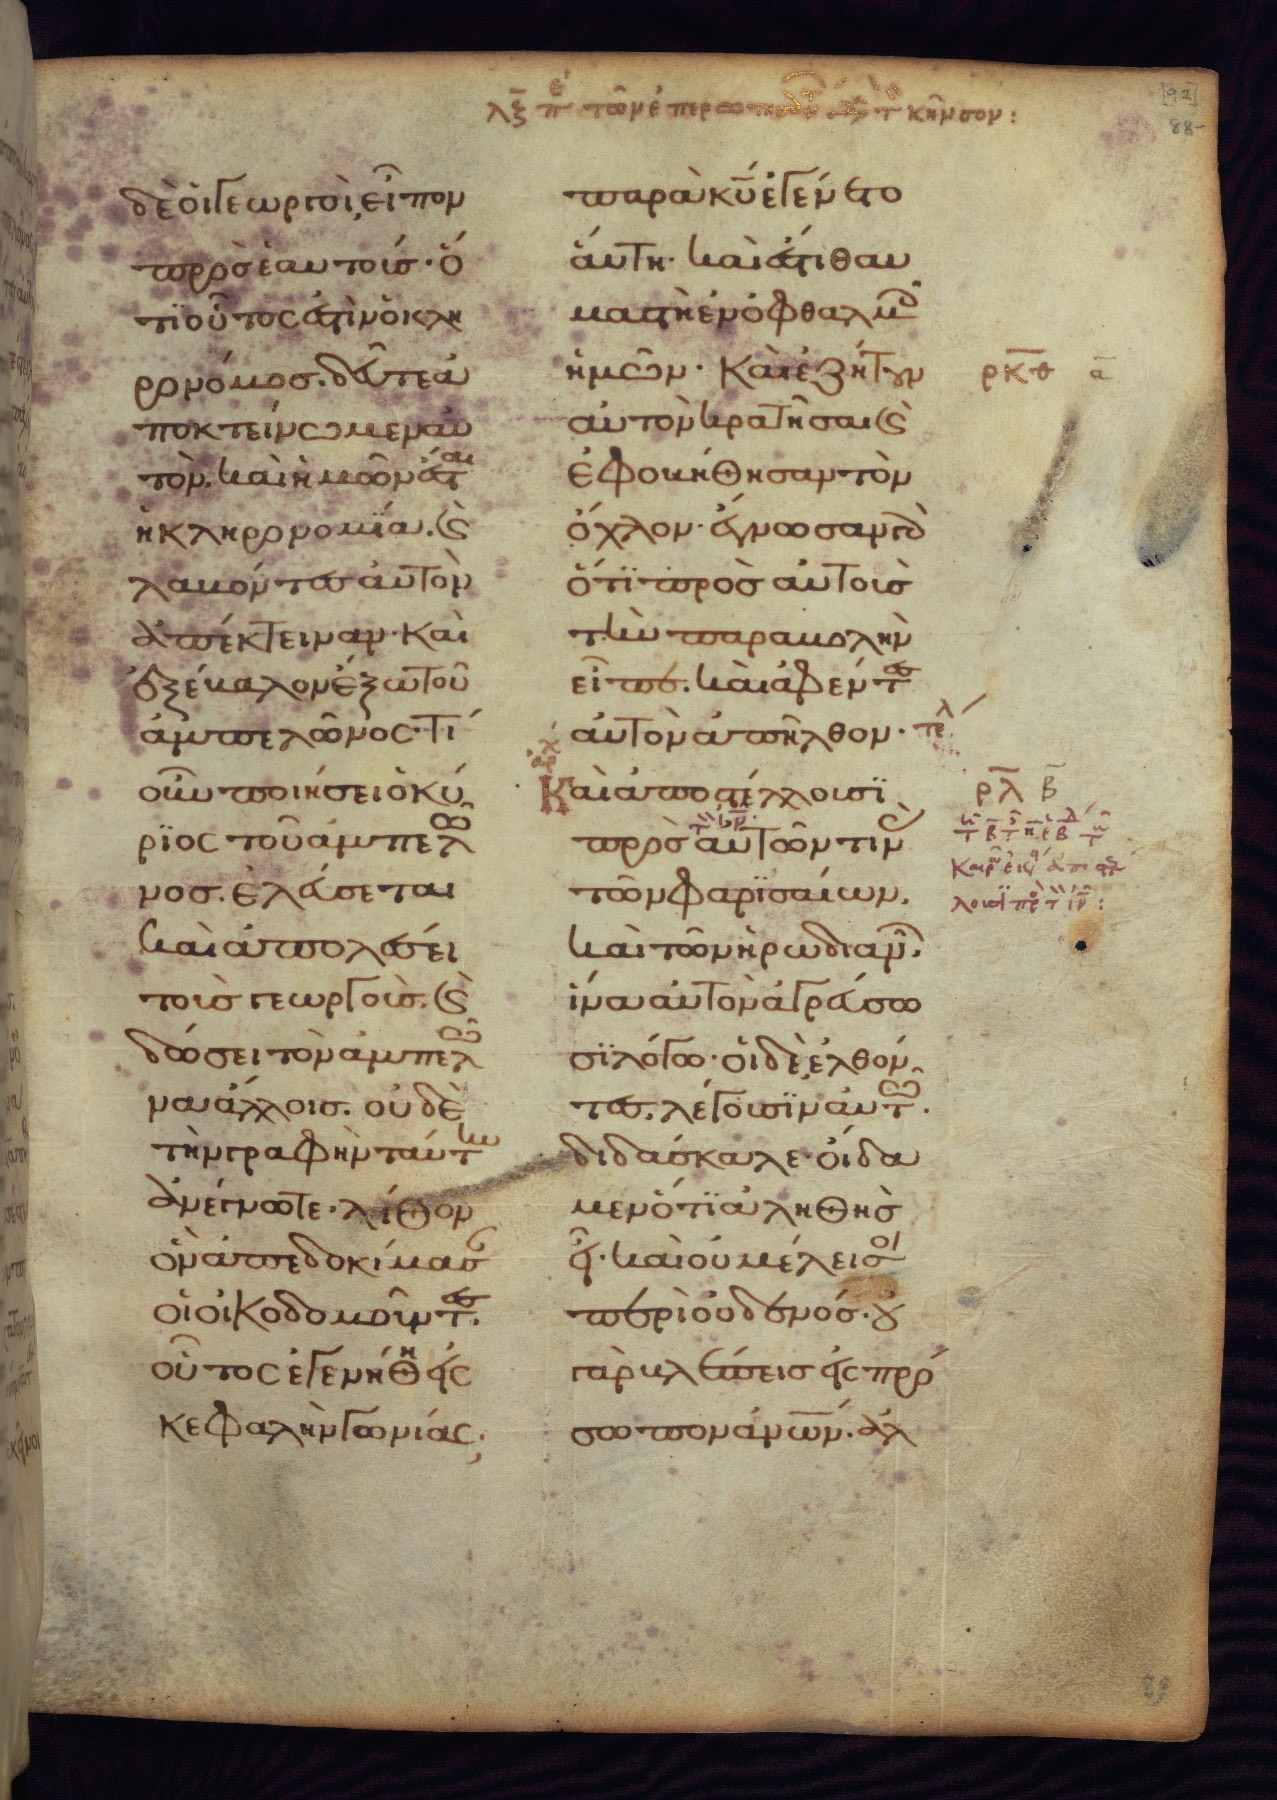 λξ πε τῶν ἐπερωτησάντων διὰ τ κῆνσον:
δὲ ὁι γεωργοὶ, εἶπον
πρὸς ἑαυτοίσ· ὅ
τϊ οὗτος ἐστὶν ὁ κλη
ρονόμοσ. δεῦτε ἀ
ποκτείνωμεν αυ
τὸν. καὶ ἡμῶν ἔσται
ἡ κληρονομϊα. καὶ
λαβόντεσ ἀυτὸν
ἀπέκτειναν· καὶ
ἐξέβαλον ἔξω τοῦ
ἀμπελῶνος· τί
οὖν ποιήσει ὁ κύ
ρϊος τοῦ ἀμπελῶ
νοσ. ἐλέυσεται
καὶ ἀπολέσει
τοὶσ γεωργοὶσ. καὶ
δώσει τὸν ἀμπελῶ
να ἄλλοισ. οὐδὲ
τὴν γραφὴν ταύτην
ἀνέγνωτε· λίθον
ὃν ἀπεδοκίμασαν
οἱ οἰκοδομοῦντες.
οὗτος ἐγενήθη εἰς
κεφαλὴν γωνίας;
παρὰ κ̅υ̅ ἐγένετο
ἅυτη· καὶ ἔστι θαυ
μαστὴ ἐν ὀφθαλμοῖς
ἡμῶν· Καὶ ἐζήτουν
αὐτὸν κρατῆσαι καὶ
ἐφοβήθησαν τὸν
ὄχλον· ἔγνωσαν γὰρ
ὅτϊ πρὸσ αὐτοισ
τὴν παραβολὴν
εἶπε. καὶ ἀφέντες
αὐτὸν ἀπῆλθον· τελ
αρχ
Καὶ ἀποστέλλουσϊ
πρὸσ αὐτὸν τινὰς
τῶν φαρϊσαίων.
καὶ τῶν ἡρωδιανῶν.
ἵνα αὐτὸν ἀγρεύσω
σϊ λόγω· ὁι δὲ ἐλθόν
τεσ. λέγουσϊν ἀυτῶ.
διδάσκαλε· ὀίδα
μεν ὅτϊ ἀληθὴσ
εἶ· καὶ οὐ μέλει σοι
περὶ οὐδενόσ· οὐ
γὰρ βλέπεισ εἰς πρό
σωπον ἀν̅ω̅ν. ἀλ
ρκθ α
ρλ β
[92]
88